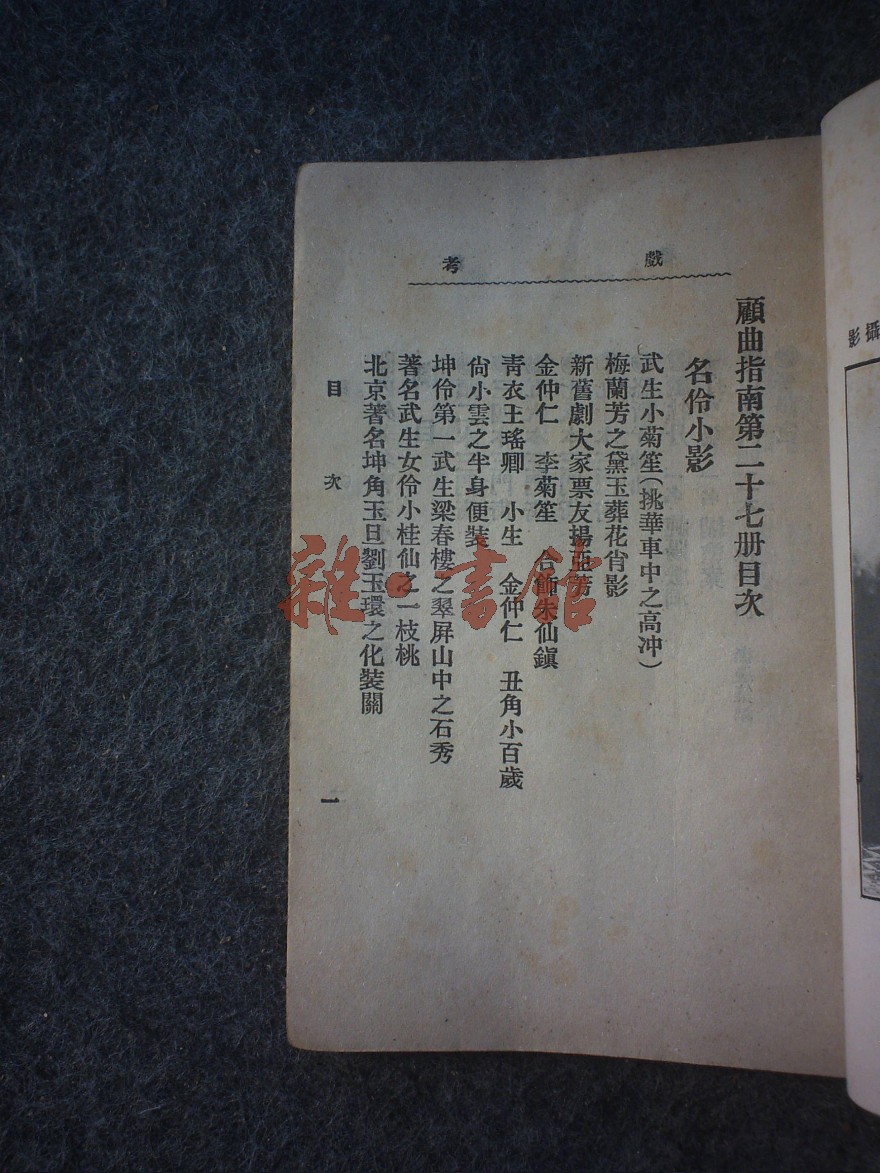 戲考
顧曲指南第二十七册目次
名伶小影
武生小菊笙(挑華車中之高冲)
梅蘭芳之黛玉葬花肖影
新舊劇大家票友揚亞芳
金仲仁 李菊笙 合飾朱仙鎮
青衣王瑤卿 小生 金仲仁 丑角小百歲
尙小雲之半身便裝
坤伶第一武生梁春樓之翠屏山中之石秀
著名武生女伶小桂仙之一枝桃
北京著名坤角玉旦劉玉環之化裝關
目次
一
攝影
雜·書館